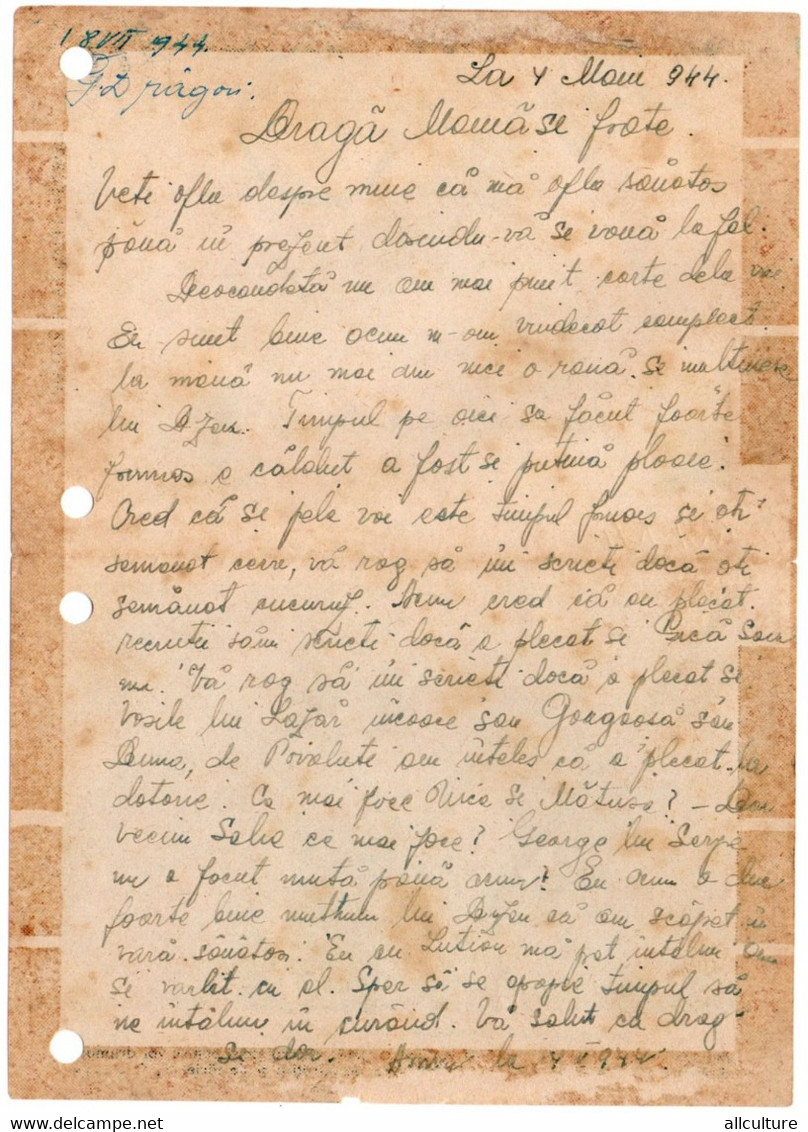 18 VII 944.
La 4 Mai 944.
Dragă Mamă si frate.
Veti afla despre mine că mă aflu sănătos
până in prezent dorindu-vă si vouă la fel.
Deocamdată nu am mai primit carte dela voi
Eu sunt bine acum m-am vindecat complect
la mână nu mai am nici o rană. si multumesc
lui Dzeu. Timpul pe aici sa făcut foarte
frumos e căldut a fost si putină ploaie.
Cred că si pela voi este timpul frumos si ati
semanat, vă rog să imi scrieti dacă ati
semănat cucuruz. Acum cred că au plecat
recrutii sămi scrieti dacă a plecat si sau
nu. Vă rog să imi scrieti dacă a plecat si
Vasile lui Lazăr incoace sau sau
de am inteles că a plecat la
datorie. Ce mai face si Mătusa? - Dar
vecinu ce mai face? George lui
nu a facut nuntă până acum? Eu acum o duc
foarte bine multumim lui Dzeu că am scăpat in
vară sănătosi. Eu cu mă pot intalni am
si vorbit cu el. Sper să se apropie timpul să
ne intălnim in curând. Vă salut cu drag
si dor. la 4 V 1944.
allculture